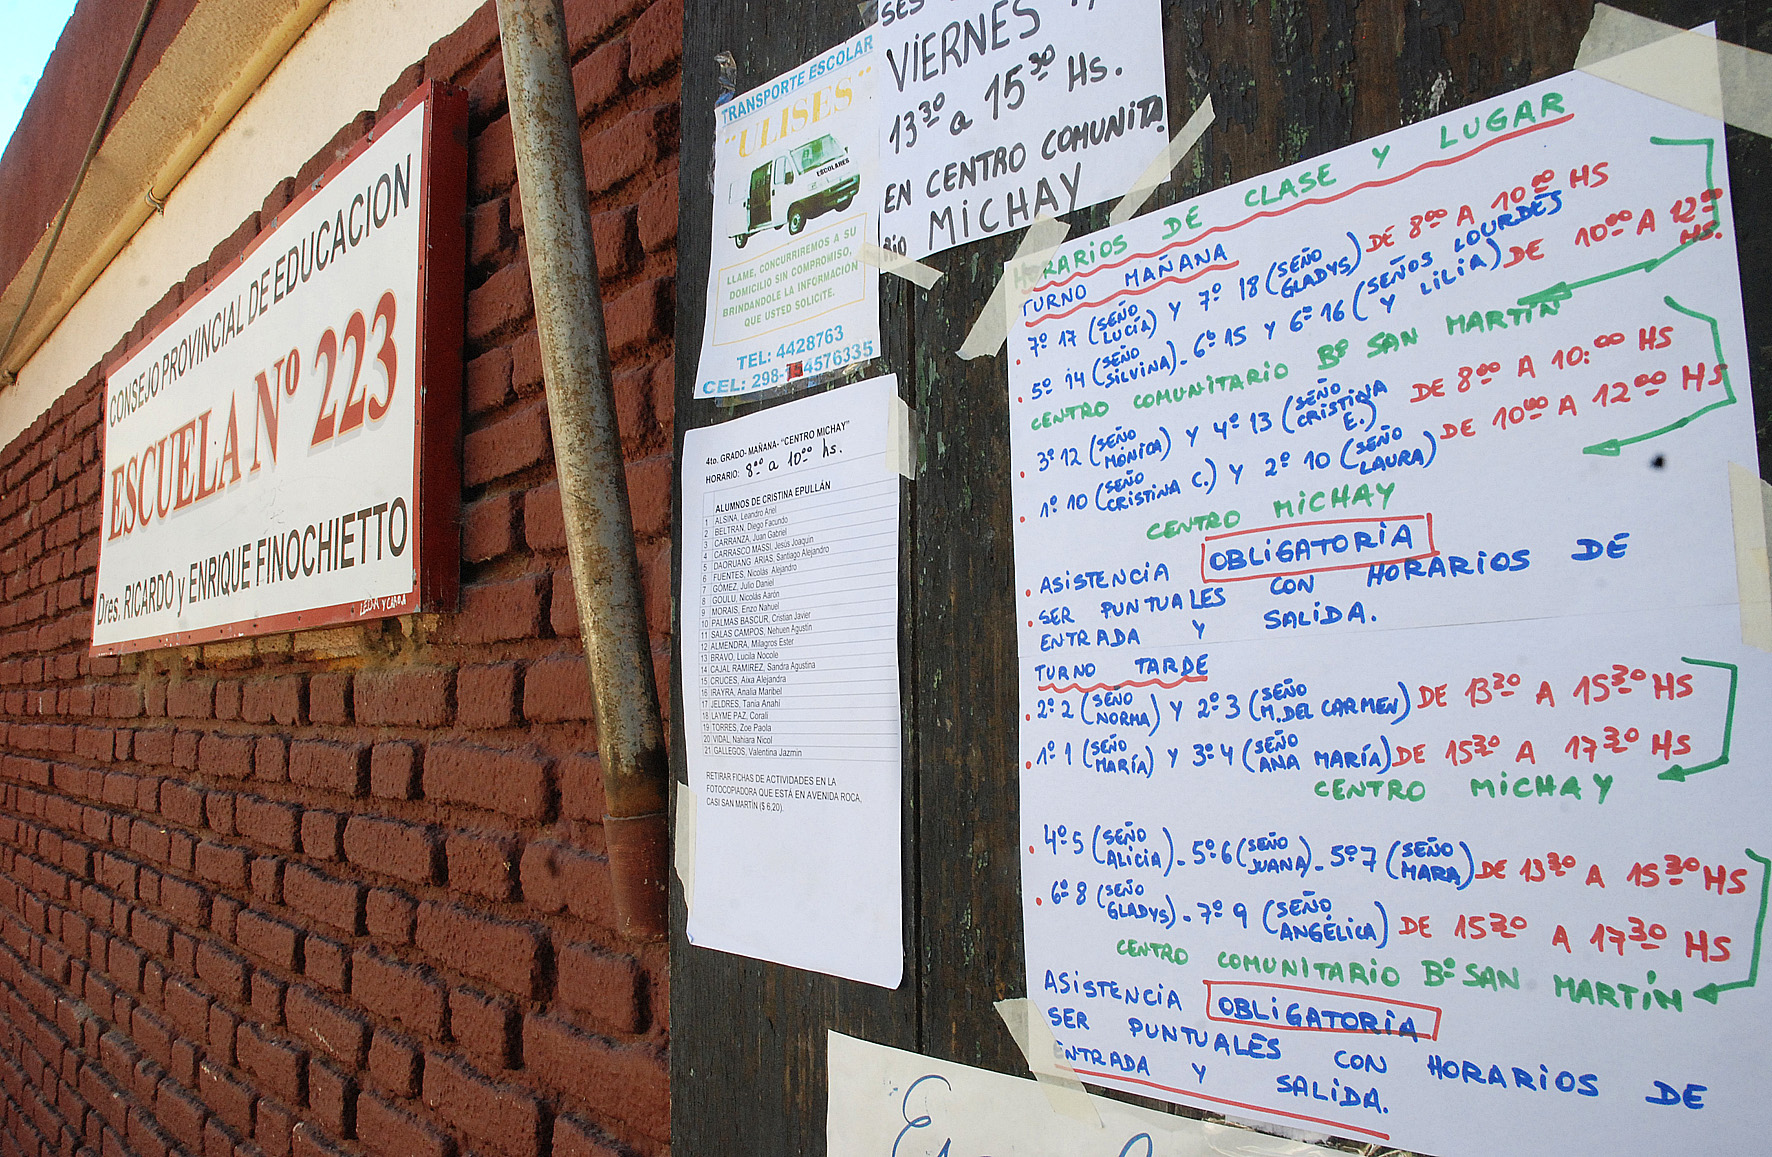 CONSEJO PROVINCIAL DE EDUCACION
ESCUELA Nº 223
Dres. RICARDO y ENRIQUE FINOCHIETTO
LECHA Y CABRA
TRANSPORTE ESCOLAR
"ULISES"
ESCOLARES
LLAME, CONCURRIREMOS A SU
DOMICILIO SIN COMPROMISO,
BRINDANDOLE LA INFORMACION
QUE USTED SOLICITE.
TEL: 4428763
CEL: 298-154576335
VIERNES
13³⁰ a 15³⁰ Hs.
EN CENTRO COMUNITA
RIO MICHAY
4to. GRADO- MAÑANA- "CENTRO MICHAY"
HORARIO: 8⁰⁰ a 10⁰⁰ hs.
ALUMNOS DE CRISTINA EPULLÁN
1 ALSINA, Leandro Ariel
2 BELTRAN, Diego Facundo
3 CARRANZA, Juan Gabriel
4 CARRASCO MASSI, Jesús Joaquin
5 DAORUANG ARIAS, Santiago Alejandro
6 FUENTES, Nicolás Alejandro
7 GÓMEZ, Julio Daniel
8 GOULU, Nicolás Aarón
9 MORAIS, Enzo Nahuel
10 PALMAS BASCUR, Cristian Javier
11 SALAS CAMPOS, Nehuen Agustin
12 ALMENDRA, Milagros Ester
13 BRAVO, Lucila Nocole
14 CAJAL RAMIREZ, Sandra Agustina
15 CRUCES, Aixa Alejandra
16 IRAYRA, Analia Maribel
17 JELDRES, Tania Anahí
18 LAYME PAZ, Corali
19 TORRES, Zoe Paola
20 VIDAL, Nahiara Nicol
21 GALLEGOS, Valentina Jazmin
RETIRAR FICHAS DE ACTIVIDADES EN LA
FOTOCOPIADORA QUE ESTÁ EN AVENIDA ROCA,
CASI SAN MARTÍN ($ 6,20).
HORARIOS DE CLASE Y LUGAR
TURNO MAÑANA
. 7º 17 (SEÑO LUCÍA) Y 7º 18 (SEÑO GLADYS) DE 8⁰⁰ A 10⁰⁰ HS
. 5º 14 (SEÑO SILVINA)- 6º 15 Y 6º 16 (SEÑOS LOURDES Y LILIA) DE 10⁰⁰ A 12⁰⁰ HS.
CENTRO COMUNITARIO Bº SAN MARTÍN
. 3º 12 (SEÑO MÓNICA) Y 4º 13 (SEÑO CRISTINA E.) DE 8⁰⁰ A 10:⁰⁰ HS
. 1º 10 (SEÑO CRISTINA C.) Y 2º 10 (SEÑO LAURA) DE 10⁰⁰ A 12⁰⁰ HS
CENTRO MICHAY
. ASISTENCIA OBLIGATORIA
. SER PUNTUALES CON HORARIOS DE
ENTRADA Y SALIDA.
TURNO TARDE
. 2º 2 (SEÑO NORMA) Y 2º 3 (SEÑO M. DEL CARMEN) DE 13³⁰ A 15³⁰ HS
. 1º 1 (SEÑO MARÍA) Y 3º 4 (SEÑO ANA MARÍA) DE 15³⁰ A 17³⁰ HS
CENTRO MICHAY
. 4º 5 (SEÑO ALICIA)- 5º 6 (SEÑO JUANA)- 5º 7 (SEÑO MARA) DE 13³⁰ A 15³⁰ HS
. 6º 8 (SEÑO GLADYS)- 7º 9 (SEÑO ANGÉLICA) DE 15³⁰ A 17³⁰ HS
CENTRO COMUNITARIO Bº SAN MARTÍN
ASISTENCIA OBLIGATORIA
SER PUNTUALES CON HORARIOS DE
ENTRADA Y SALIDA.